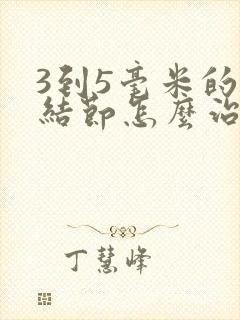 3到5毫米的
結節怎麼治
丁慧峰